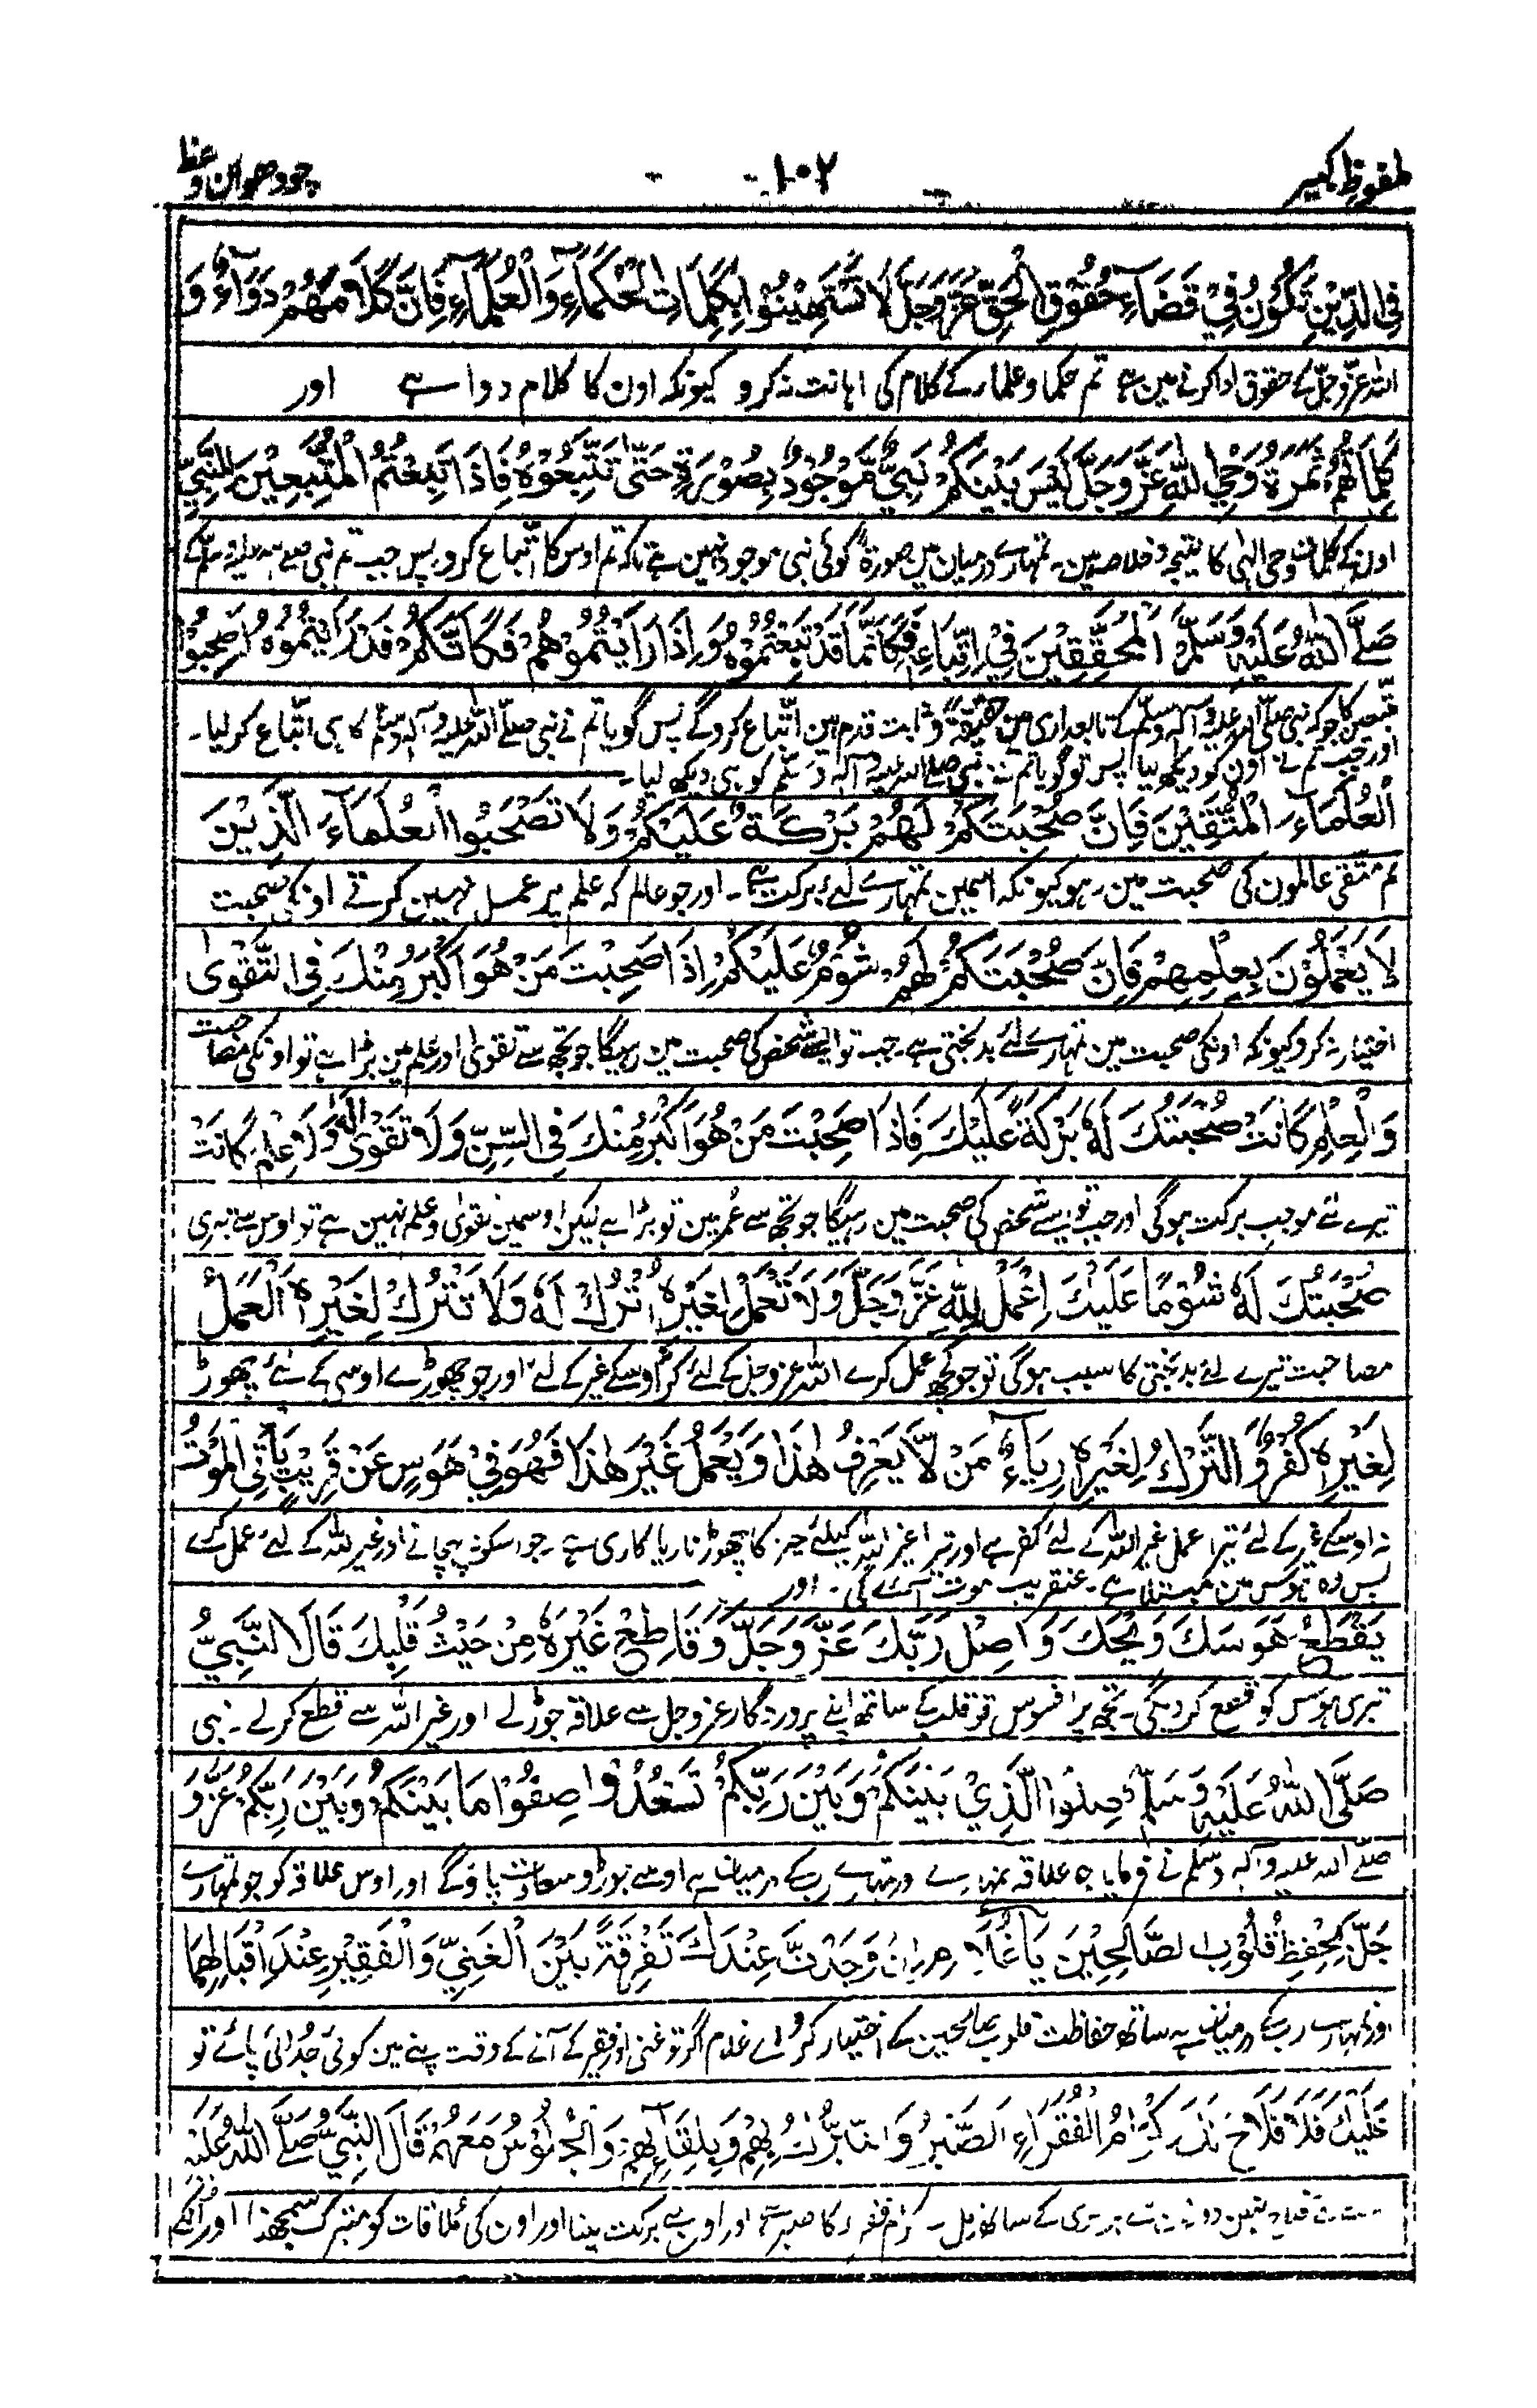 ملفوظِ کبیر
۱۰۲
چودھوان وعظ
فِی الدِّیْنِ تَکُوْنُ فِیْ قَضَآءِ حُقُوْقِ الْحَقِّ عَزَّ وَجَلَّ لَا تَسْتَهِیْنُوْا بِکَلِمَاتِ الْحُکَمَآءِ وَالْعُلَمَآءِ فَاِنَّ کَلَامَهُمْ دَوَآءٌ وَ
اللہ عزّوجلّ کے حقوق ادا کرنے مین ہے تم حکما وعلماء کے کلام کی اہانت نہ کرو کیونکہ اون کا کلام دوا ہے اور
کَلِمَاتُهُمْ ثَمَرَةُ وَحْیِ اللّٰهِ عَزَّ وَجَلَّ لَیْسَ بَیْنَکُمْ نَبِیٌّ مَّوْجُوْدٌ بِصُوْرَةٍ حَتّٰی تَتَّبِعُوْهُ فَاِذَا تَبِعْتُمُ الْمُتَّبِعِیْنَ لِلنَّبِیِّ
اون کے کلمات وحی الٰہی کا نتیجہ وخلاصہ ہین۔ تمہارے درمیان مین صورۃً کوئی نبی موجود نہین ہے تاکہ تم اوس کا اتّباع کرو پس جب تم نبی صلے اللہ علیہ وسلم کے
صَلَّی اللّٰهُ عَلَیْهِ وَسَلَّمَ الْمُحَقِّقِیْنَ فِیْ اِتِّبَاعِهٖ فَکَاَنَّمَا قَدْ تَبِعْتُمُوْهُ وَاِذَا رَاَیْتُمُوْهُمْ فَکَاَنَّکُمْ قَدْ رَاَیْتُمُوْهُ اِصْحَبُوا
متبعین کا جو کہ نبی صلّی اللہ علیہ وآلہ وسلّم کے تابعداری مین حقیقۃً وثابت قدم ہین اتّباع کروگے پس گویا تم نے نبی صلّے اللہ علیہ وآلہ وسلم کا ہی اتّباع کر لیا۔
اور جب تم نے اون کو دیکھ لیا پس تو گویا تم نے نبی صلے اللہ علیہ وآلہ وسلّم کو ہی دیکھ لیا۔
الْعُلَمَآءَ الْمُتَّقِیْنَ فَاِنَّ صُحْبَتَکُمْ لَهُمْ بَرَکَةٌ عَلَیْکُمْ وَلَا تَصْحَبُوا الْعُلَمَآءَ الَّذِیْنَ
تم متقی عالمون کی صحبت مین رہو کیونکہ اسمین تمہارے لئے برکت ہے۔ اور جو عالم کہ علم پر عمل نہین کرتے اونکی صحبت
لَا یَعْمَلُوْنَ بِعِلْمِهِمْ فَاِنَّ صُحْبَتَکُمْ لَهُمْ شُوْمٌ عَلَیْکُمْ اِذَا صَحِبْتَ مَنْ هُوَ اَکْبَرُ مِنْكَ فِی التَّقْوٰی
اختیار نہ کرو کیونکہ اونکی صحبت مین تمہارے لئے بدبختی ہے۔ جب تو ایسے شخص کی صحبت مین رہیگا جو تجھ سے تقوٰی اور علم مین بڑا ہے تو اونکی مصاحبت
وَالْعِلْمِ کَانَتْ صُحْبَتُكَ لَهٗ بَرَکَةً عَلَیْكَ فَاِذَا صَحِبْتَ مَنْ هُوَ اَکْبَرُ مِنْكَ فِی السِّنِّ وَلَا تَقْوٰی لَهٗ وَلَا عِلْمَ کَانَتْ
تیرے لئے موجب برکت ہوگی اور جب تو ایسے شخص کی صحبت مین رہیگا جو تجھ سے عُمر مین تو بڑا ہے لیکن اوسمین تقوٰی وعلم نہین ہے تو اوس سے تیری
صُحْبَتُكَ لَهٗ شُوْمًا عَلَیْكَ اِعْمَلْ لِلّٰهِ عَزَّ وَجَلَّ وَلَا تَعْمَلْ لِغَیْرِهٖ اُتْرُكْ لَهٗ وَلَا تَتْرُكْ لِغَیْرِهٖ اَلْعَمَلُ
مصاحبت تیرے لئے بدبختی کا سبب ہوگی تو جو کچھ عمل کرے اللہ عزوجل کے لئے کر نہ اوسکے غیر کے لئے اور جو چھوڑے اوسی کے لئے چھوڑ
لِغَیْرِهٖ کُفْرٌ وَّالتَّرْكُ لِغَیْرِهٖ رِیَآءٌ مَنْ لَّا یَعْرِفُ هٰذَا وَیَعْمَلُ غَیْرَ هٰذَا فَهُوَ فِیْ هَوَسٍ عَنْ قَرِیْبٍ یَّاْتِی الْمَوْتُ
نہ اوسکے غیر کے لئے تیرا عمل غیر اللہ کے لئے کفر ہے اور تیرا غیر اللہ کیلئے چیز کا چھوڑنا ریاکاری ہے۔ جو اسکو نہ پہچانے اور غیر اللہ کے لئے عمل کرے
پس وہ ہوس مین مبتلا ہے۔ عنقریب موت آئے گی۔ اور
یَقْطَعُ هَوَسَكَ وَیْحَكَ وَاصِلْ رَبَّكَ عَزَّ وَجَلَّ وَقَاطِعْ غَیْرَهٗ مِنْ حَیْثُ قَلْبِكَ قَالَ النَّبِیُّ
تیری ہوس کو قطع کر دیگی۔ تجھ پر افسوس تو قلب کے ساتھ اپنے پروردگار عزوجل سے علاقہ جوڑ لے اور غیر اللہ سے قطع کر لے۔ نبی
صَلَّی اللّٰهُ عَلَیْهِ وَسَلَّمَ صِلُوا الَّذِیْ بَیْنَکُمْ وَبَیْنَ رَبِّکُمْ تَسْعَدُوْا صِفُوْا مَا بَیْنَکُمْ وَبَیْنَ رَبِّکُمْ عَزَّ وَ
صلّے اللہ علیہ وآلہ وسلّم نے فرمایا جو علاقہ تمہارے اور تمہارے رب کے درمیان ہے اوسے جوڑو سعادت پاؤگے اور اوس علاقہ کو جو تمہارے
جَلَّ بِحِفْظِ قُلُوْبِ الصَّالِحِیْنَ یَا غُلَامُ اِنْ وَجَدْتَّ عِنْدَكَ تَفْرِقَةً بَیْنَ الْغَنِیِّ وَالْفَقِیْرِ عِنْدَ اِقْبَالِهِمَا
اور تمہارے رب کے درمیان ہے ساتھ حفاظت قلوب صالحین کے اختیار کرو اے غلام اگر تو غنی اور فقیر کے آنے کے وقت اپنے مین کوئی جُدائی پائے تو
عَلَیْكَ فَلَا فَلَاحَ لَكَ اِکْرَامُ الْفُقَرَاءِ الصُّبُرِ وَالتَّبَرُّكُ بِهِمْ وَبِلِقَآئِهِمْ وَالْجُلُوْسُ مَعَهُمْ قَالَ النَّبِیُّ صَلَّی اللّٰهُ عَلَیْهِ
اور اون سے برکت لینا اور اون کی مُلاقات کو متبرک سمجھنا اور